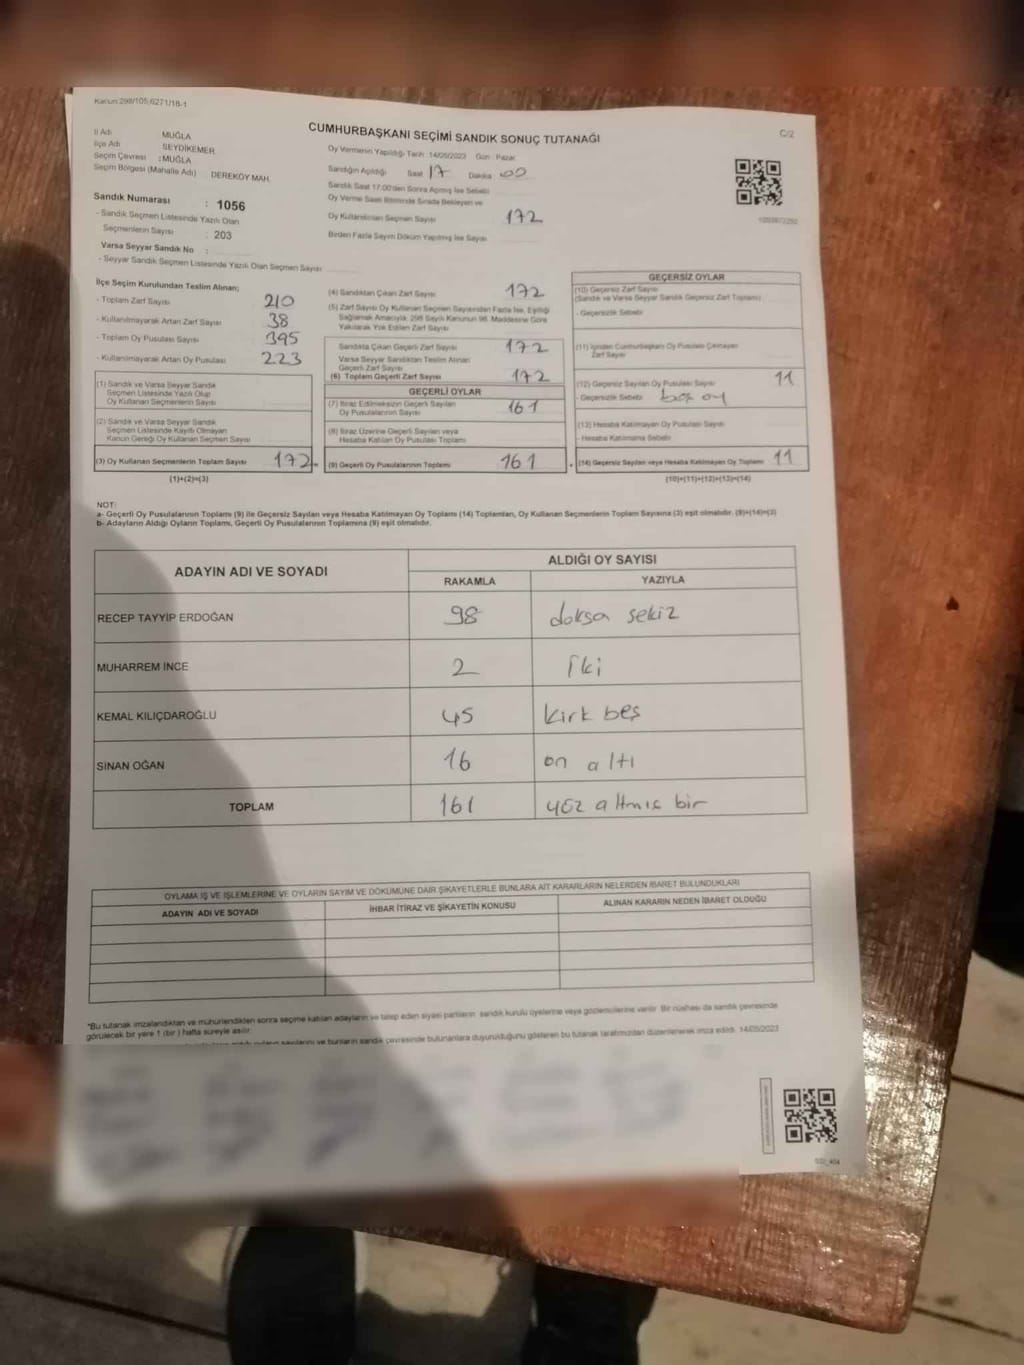 Kanun:298/105,6271/18-1
CUMHURBAŞKANI SEÇİMİ SANDIK SONUÇ TUTANAĞI
C/2
İl Adı MUĞLA
İlçe Adı SEYDİKEMER
Seçim Çevresi : MUĞLA
Seçim Bölgesi (Mahalle Adı) : DEREKÖY MAH.
Oy Vermenin Yapıldığı Tarih : 14/05/2023 Gün : Pazar
Sandığın Açıldığı Saat 17 Dakika 00
Sandık Saat 17.00'den Sonra Açılmış İse Sebebi
Oy Verme Saati Bitiminde Sırada Bekleyen ve
Oy Kullandırılan Seçmen Sayısı 172
Birden Fazla Sayım Döküm Yapılmış İse Sayısı
Sandık Numarası : 1056
- Sandık Seçmen Listesinde Yazılı Olan
Seçmenlerin Sayısı : 203
Varsa Seyyar Sandık No :
- Seyyar Sandık Seçmen Listesinde Yazılı Olan Seçmen Sayısı
İlçe Seçim Kurulundan Teslim Alınan;
- Toplam Zarf Sayısı 210
- Kullanılmayarak Artan Zarf Sayısı 38
- Toplam Oy Pusulası Sayısı 395
- Kullanılmayarak Artan Oy Pusulası 223
(1) Sandık ve Varsa Seyyar Sandık
Seçmen Listesinde Yazılı Olup
Oy Kullanan Seçmenlerin Sayısı
(2) Sandık ve Varsa Seyyar Sandık
Seçmen Listesinde Kayıtlı Olmayan
Kanun Gereği Oy Kullanan Seçmen Sayısı
(3) Oy Kullanan Seçmenlerin Toplam Sayısı 172
(1)+(2)=(3)
(4) Sandıktan Çıkan Zarf Sayısı 172
(5) Zarf Sayısı Oy Kullanan Seçmen Sayısından Fazla İse, Eşitliği
Sağlamak Amacıyla; 298 Sayılı Kanunun 98. Maddesine Göre
Yakılarak Yok Edilen Zarf Sayısı
Sandıkta Çıkan Geçerli Zarf Sayısı 172
Varsa Seyyar Sandıktan Teslim Alınan
Geçerli Zarf Sayısı
(6) Toplam Geçerli Zarf Sayısı 172
GEÇERLİ OYLAR
(7) İtiraz Edilmeksizin Geçerli Sayılan
Oy Pusulalarının Sayısı 161
(8) İtiraz Üzerine Geçerli Sayılan veya
Hesaba Katılan Oy Pusulası Toplamı
(9) Geçerli Oy Pusulalarının Toplamı 161
GEÇERSİZ OYLAR
(10) Geçersiz Zarf Sayısı
(Sandık ve Varsa Seyyar Sandık Geçersiz Zarf Toplamı)
- Geçersizlik Sebebi
(11) İçinden Cumhurbaşkanı Oy Pusulası Çıkmayan
Zarf Sayısı
(12) Geçersiz Sayılan Oy Pusulası Sayısı 11
- Geçersizlik Sebebi boş oy
(13) Hesaba Katılmayan Oy Pusulası Sayısı
- Hesaba Katılmama Sebebi
(14) Geçersiz Sayılan veya Hesaba Katılmayan Oy Toplamı 11
(10)+(11)+(12)+(13)=(14)
NOT:
a- Geçerli Oy Pusulalarının Toplamı (9) ile Geçersiz Sayılan veya Hesaba Katılmayan Oy Toplamı (14) Toplamları, Oy Kullanan Seçmenlerin Toplam Sayısına (3) eşit olmalıdır. (9)+(14)=(3)
b- Adayların Aldığı Oyların Toplamı, Geçerli Oy Pusulalarının Toplamına (9) eşit olmalıdır.
ADAYIN ADI VE SOYADI
ALDIĞI OY SAYISI
RAKAMLA YAZIYLA
RECEP TAYYİP ERDOĞAN 98 doksa sekiz
MUHARREM İNCE 2 iki
KEMAL KILIÇDAROĞLU 45 kırk beş
SİNAN OĞAN 16 on altı
TOPLAM 161 yüz altmış bir
OYLAMA İŞ VE İŞLEMLERİNE VE OYLARIN SAYIM VE DÖKÜMÜNE DAİR ŞİKAYETLERLE BUNLARA AİT KARARLARIN NELERDEN İBARET BULUNDUKLARI
ADAYIN ADI VE SOYADI İHBAR İTİRAZ VE ŞİKAYETİN KONUSU ALINAN KARARIN NEDEN İBARET OLDUĞU
*Bu tutanak imzalandıktan ve mühürlendikten sonra seçime katılan adayların ve talep eden siyasi partilerin sandık kurulu üyelerine veya gözlemcilerine verilir. Bir nüshası da sandık çevresinde
görülecek bir yere 1 (bir) hafta süreyle asılır.
bulunanlara duyurulduğunu gösteren bu tutanak tarafımızdan düzenlenerek imza edildi. 14/05/2023